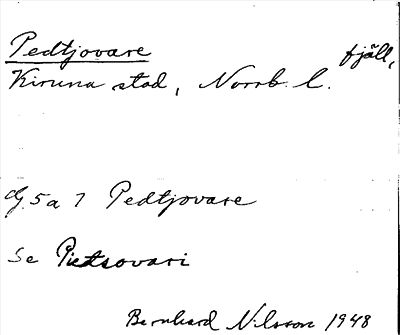 Pedtjovare fjäll,
Kiruna stad, Norrb. l.
Gg. 5 a 7 Pedtjovare
Se Pietsovari
Bernhard Nilsson 1948